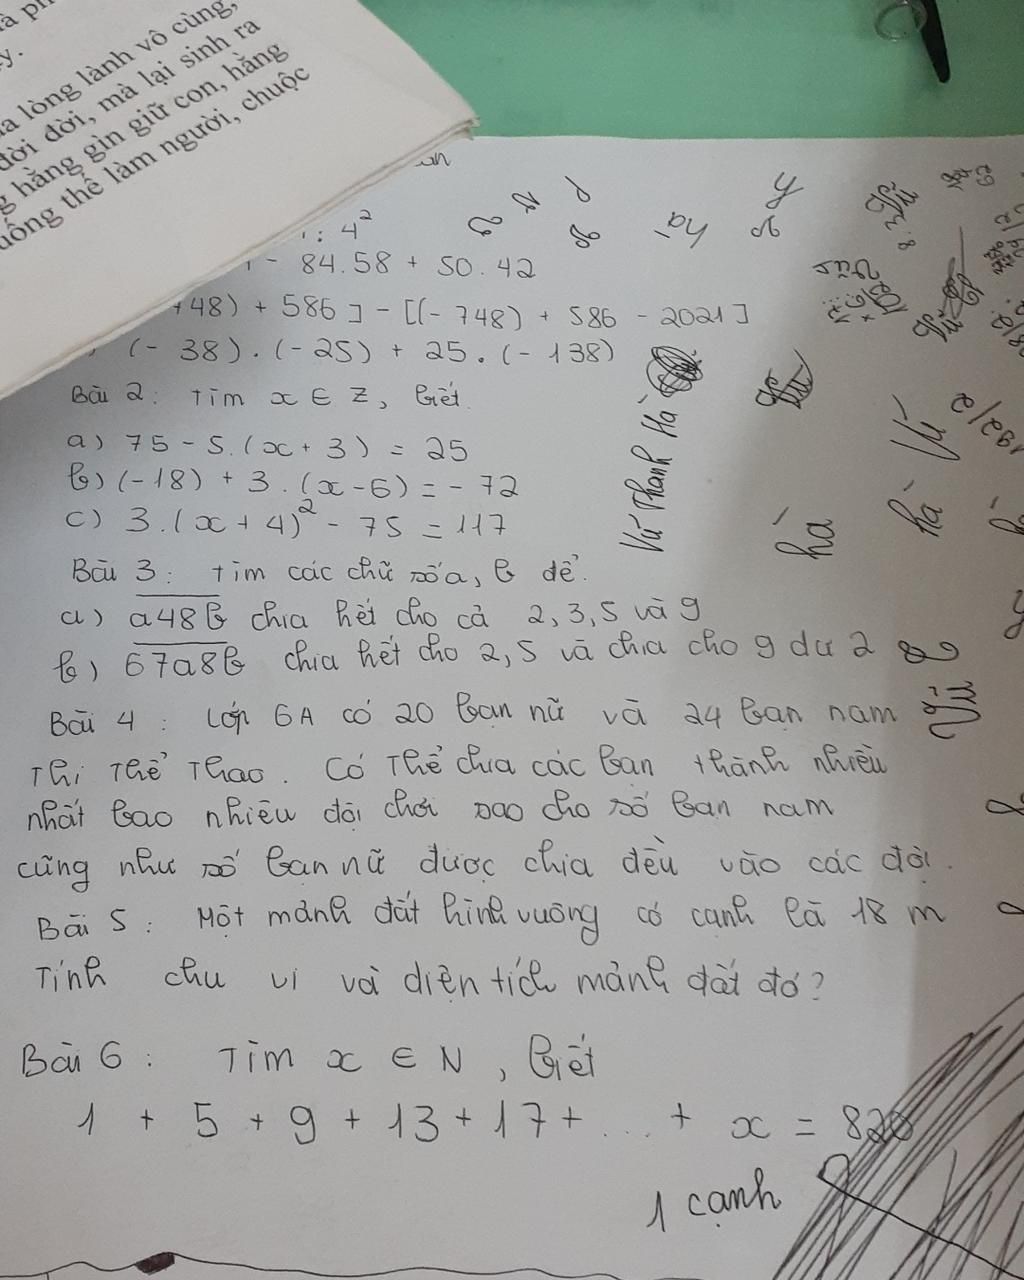 lòng lành vô cùng,
đời đời, mà lại sinh ra
hằng gìn giữ con, hằng
thể làm người, chuộc
: 4²
- 84.58 + 50.42
48) + 586] - [(- 748) + 586 - 2021]
(- 38) . (- 25) + 25 . (- 138)
Bài 2 : Tìm x ∈ Z, biết
a) 75 - 5.(x + 3) = 25
b) (-18) + 3 . (x - 6) = - 72
c) 3.(x + 4)² - 75 = 117
Bài 3 : Tìm các chữ số a, b để
a) a48b chia hết cho cả 2, 3, 5 và 9
b) 67a8b chia hết cho 2, 5 và chia cho 9 dư 2
Bài 4 : Lớp 6A có 20 bạn nữ và 24 bạn nam
Thi Thể Thao. Có Thể chia các bạn thành nhiều
nhất bao nhiêu đội chơi sao cho số bạn nam
cũng như số bạn nữ được chia đều vào các đội.
Bài 5 : Một mảnh đất hình vuông có cạnh là 18 m
Tính chu vi và diện tích mảnh đất đó?
Bài 6 : Tìm x ∈ N, biết
1 + 5 + 9 + 13 + 17 + ... + x = 820
1 cạnh
Vũ Thanh Hà
hà
hà
hà
Vũ
192/2